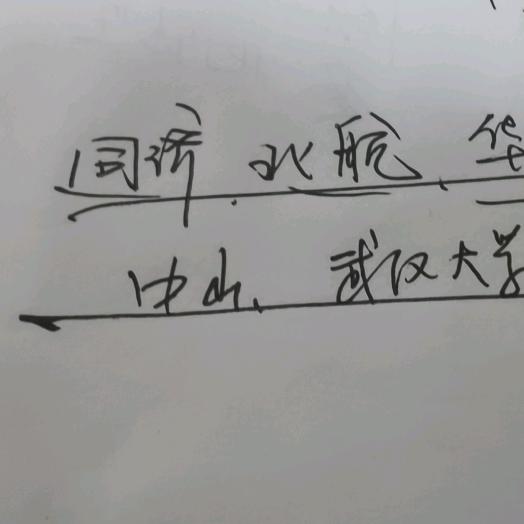 同济、北航、华
中山、武汉大学